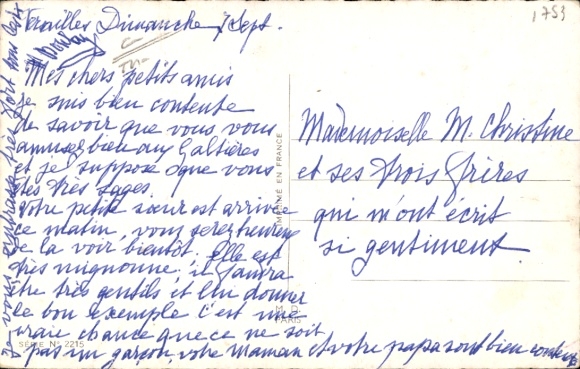 Versailles Dimanche 7 Sept.
1753
Mes chers petits amis
je suis bien contente
de savoir que vous vous
amusez bien aux Galtières
et je suppose que vous
êtes très sages.
votre petite sœur est arrivée
ce matin, vous serez heureux
de la voir bientôt. Elle est
très mignonne, il faudra
être très gentils et lui donner
le bon exemple c'est une
vraie chance que ce ne soit
pas un garçon, votre Maman et votre papa sont bien contents
je vous embrasse très fort
Mademoiselle M. Christine
et ses trois frères
qui m'ont écrit
si gentiment.
IMPRIMÉ EN FRANCE
M. D.
PARIS
SÉRIE N° 2215